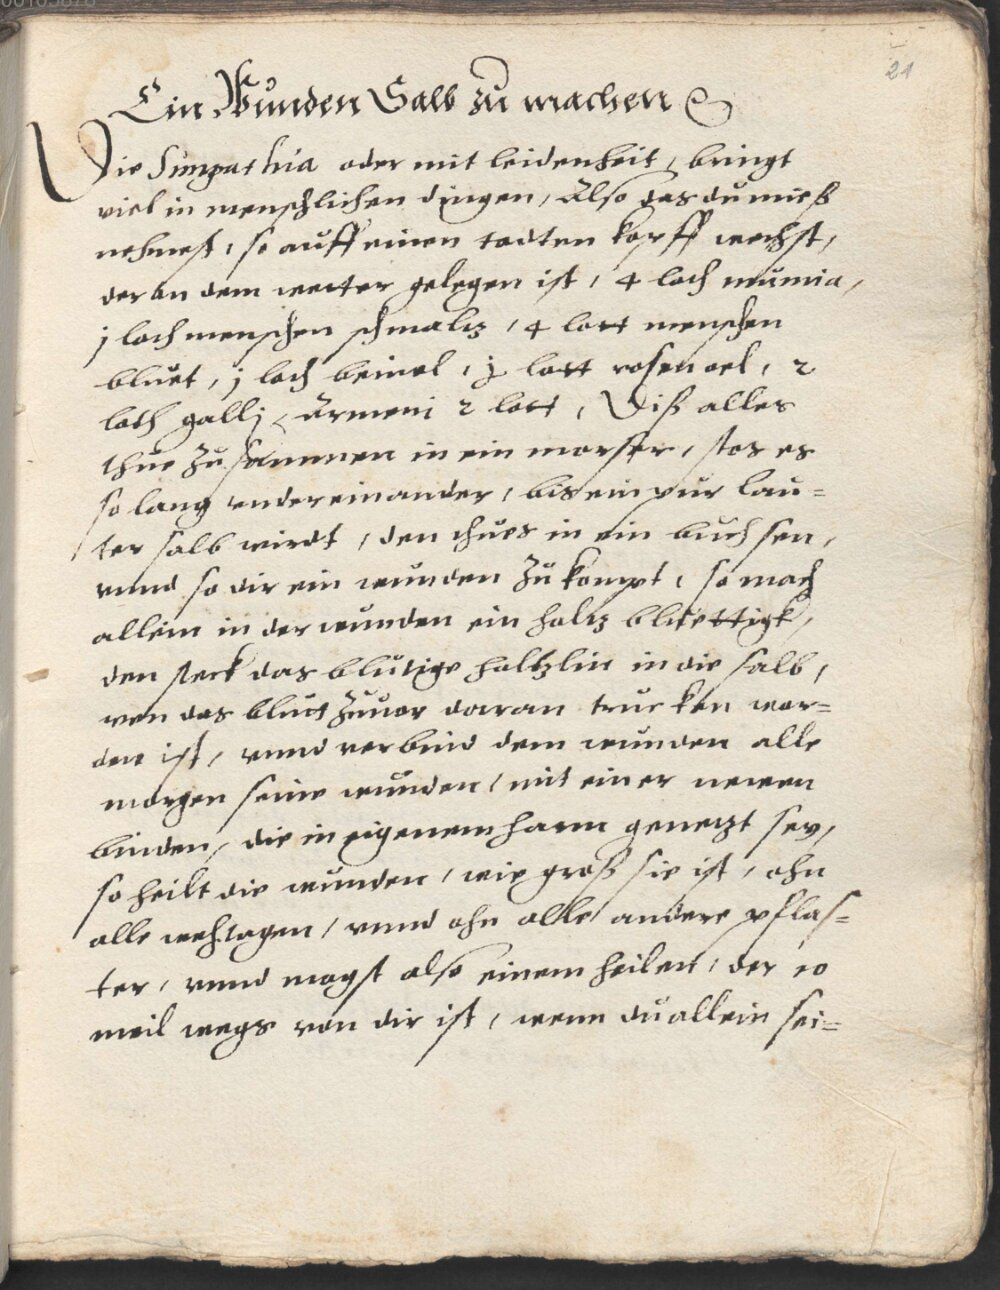 21
Ein Wunden Salb zu machen
Die Simpathia oder mit leidenheit, bringt
viel in menschlichen dingen, Also das du mieß
nehmest, so auff einen todten kopff wechst,
der an dem wetter gelegen ist, 4 loth mumia,
j loth menschen schmaltz, 4 lott menschen
bluet, j loth beinöl, j lott rosen oel, 2
loth gallj Armeni 2 lott, Diß alles
thue zu sammen in ein morser, stos es
so lang undereinander, bis ein pur lau=
ter salb wirdt, den thues in ein buchsen,
unnd so dir ein wunden zu kompt, so mach
allein in der wunden ein holtz bluettigk,
den steck das blutige holtzlin in die salb,
wen das bluot zuvor daran trucken wor=
den ist, unnd verbind dem wunden alle
morgen seine wunden, mit einer newen
binden, die in eigenem harm genetzt sey,
so heilt die wunden, wie groß sie ist, ohn
alle wehtagen, unnd ohn alle andere pflas=
ter, unnd magst also einem heilen, der 10
meil wegs von dir ist, wenn du allein sei=